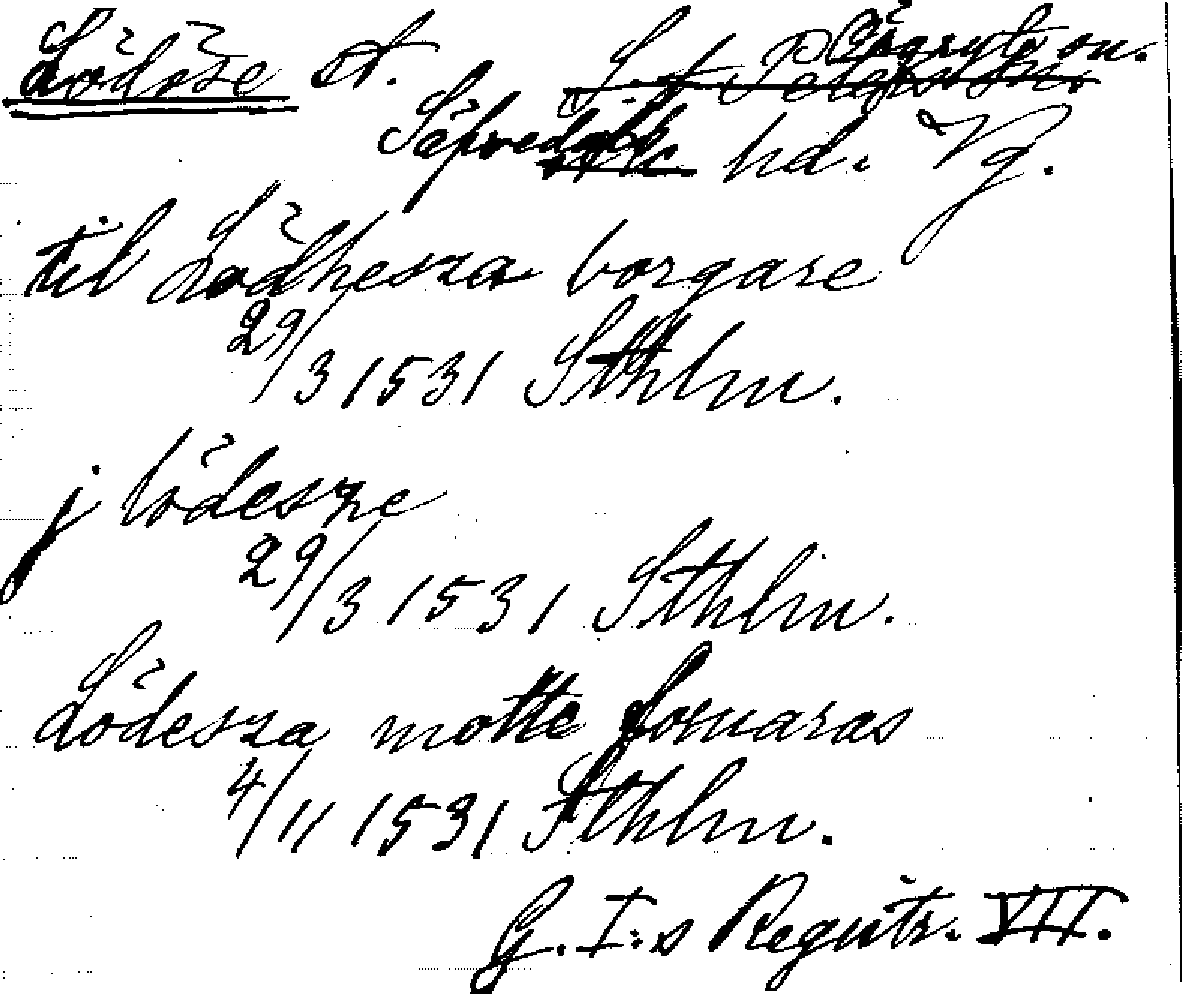 Lödöse st. S:t Peders sn. Örgryte sn.
Sävedals hd. Vg.
til Lödhesza borgare
29/3 1531 Sthlm.
j lödesze
29/3 1531 Sthlm.
Lödesza motte foruaras
4/11 1531 Sthlm.
G. I:s Registr. VII.